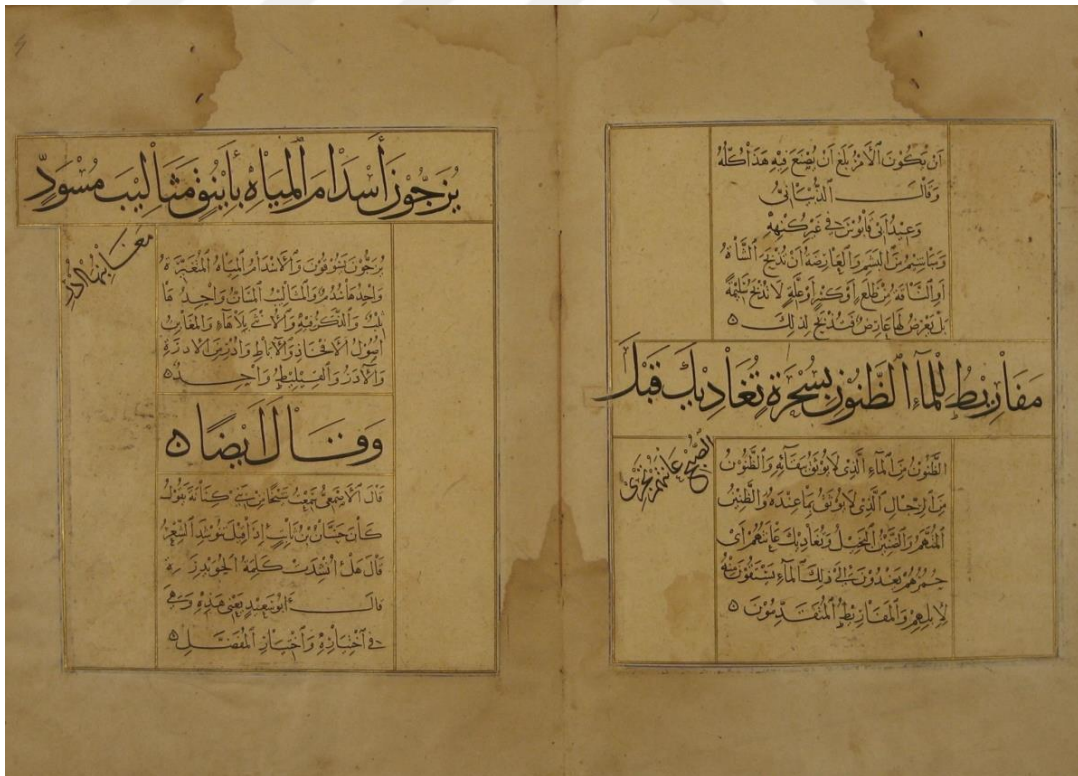 اَنْ تَكُونَ الْاَمْرُ بَلَغَ اَنْ يُصْنَعَ فِيْهِ هَذَا كُلُّهُ
وَقَالَ الذُّبْيَانِيُّ
وَعِيْدُ اَبِي قَابُوْسَ فِي غَيْرِ كُنْهِهِ
مِنَ الْبَشَمِ وَالْعَارِضَةُ اَنْ تُذْبَحَ الشَّاةُ
اَوِ النَّاقَةُ مِنْ ظَلَعٍ اَوْ كَسْرٍ اَوْ عِلَّةٍ لَا تُذْبَحُ سَلِيْمَةً
بَلْ يَعْرِضُ لَهَا عَارِضٌ فَتُذْبَحُ لِذٰلِكَ ه
مَفَارِيْطُ لِلْمَآءِ الظَّنُوْنِ بِسُحْرَةٍ تُغَادِيْكَ قَبْلَ
الصُّبْحِ عَانَتُهُمْ تَجْرِيْ
الظَّنُوْنُ مِنَ الْمَآءِ الَّذِيْ لَا يُوْثَقُ بِبَقَآئِهِ وَالظَّنُوْنُ
مِنَ الرِّجَالِ الَّذِيْ لَا يُوْثَقُ بِمَا عِنْدَهُ وَالظَّنِيْنُ
الْمُتَّهَمُ وَالضَّنِيْنُ الْبَخِيْلُ وَتُغَادِيْكَ عَانَتُهُمْ اَيْ
حُمُرُهُمْ يَغْدُوْنَ اِلَى ذٰلِكَ الْمَآءِ يَسْتَقُوْنَ مِنْهُ
لِاِبِلِهِمْ وَالْمَفَارِيْطُ الْمُتَقَدِّمُوْنَ ه
يُزَجُّوْنَ أَسْدَامَ الْمِيَاهِ بِأَيْنُقٍ مَثَالِيْبَ مُسْوَدٍّ
مَغَابِنُهَا أُدْرِ
يُزَجُّوْنَ يَسُوْقُوْنَ وَالْاَسْدَامُ الْمِيَاهُ الْمُتَغَيِّرَةُ
وَاحِدُهَا سُدُمٌ وَالْمَثَالِيْبُ الْمَسَانُّ وَاحِدُهَا
ثِلْبٌ وَالذَّكَرُ فِيْهِ وَالْاُنْثَى بِلَا هَاءٍ وَالْمَغَابِنُ
اُصُوْلُ الْاَفْخَاذِ وَالْآبَاطِ وَادُرٌ مِنَ الْاُدْرَةِ
وَالْآدَرُ وَاحِدٌ ه
وَقَالَ اَيْضًا ه
قَالَ الْاَصْمَعِيُّ سَمِعْتُ شَيْخًا مِنْ بَنِي كِنَانَةَ يَقُوْلُ
كَانَ حَسَّانُ بْنُ ثَابِتٍ اِذَا قِيْلَ تُنُوْشِدَ الشِّعْرُ
قَالَ هَلْ اُنْشِدَتْ كَلِمَةُ الْحُوَيْدِرَةِ
قَالَ اَبُوْ عُبَيْدٍ يَعْنِي هٰذِهِ وَهِيَ
فِي اخْتِيَارِهِ وَاخْتِيَارِ الْمُفَضَّلِ ه